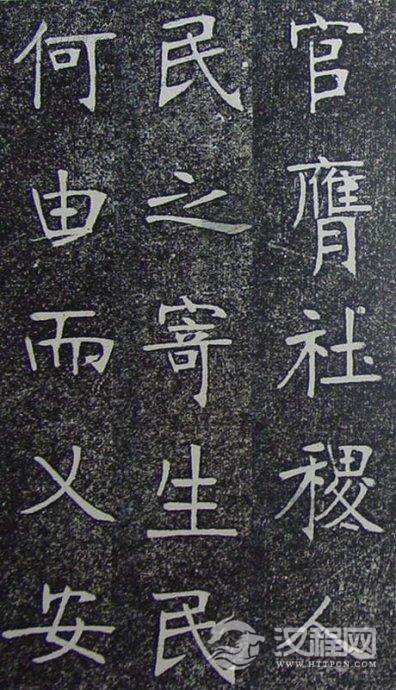 官膺社稷人
民之寄生民
何由而乂安
汉程网
WWW.HTTPCN.COM